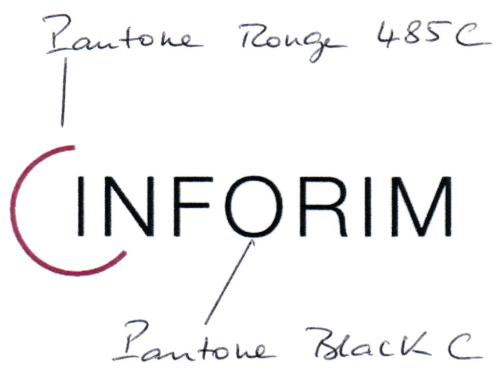 Pantone Rouge 485C
INFORIM
Pantone Black C